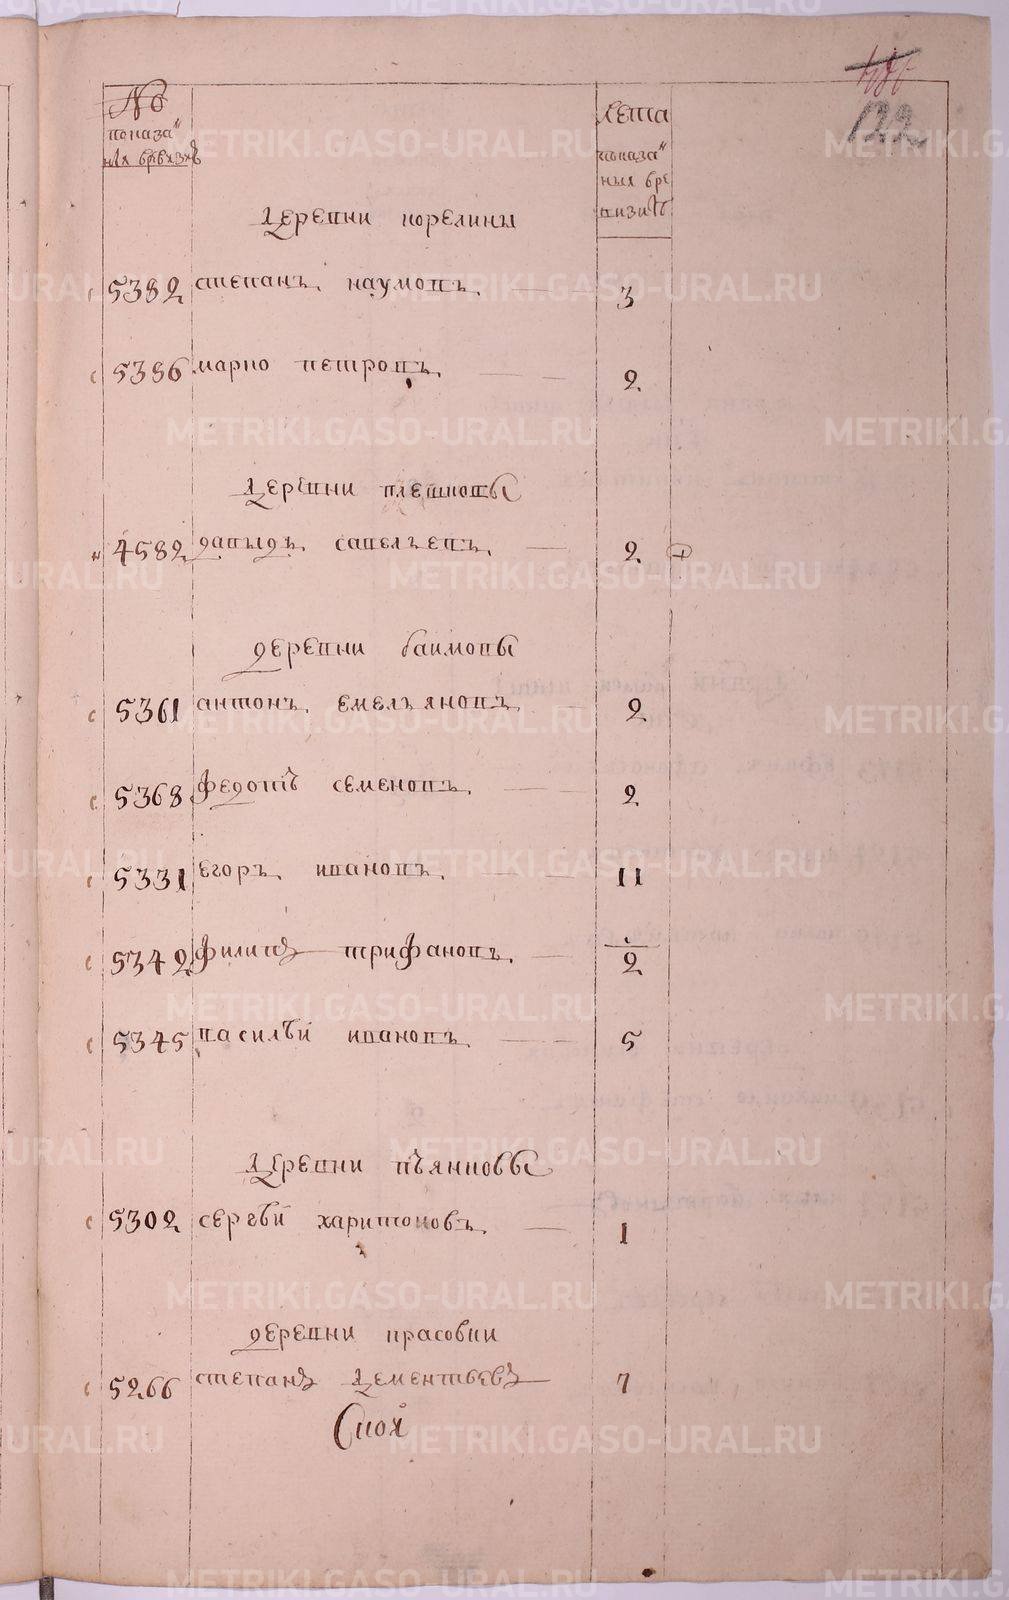 122
№
показа"
нїя вревизиѣ
Лета
показа"
ныя вре
визиѣ
деревни корелины
5382 степанъ наумовъ 3
5386 марко петровъ 2
деревни плешковы
4582 давыдъ савельевъ 2
деревни баимовы
5361 антонъ емельяновъ 2
5368 федотъ семеновъ 2
5331 егоръ ивановъ 11
5342 филипъ трифановъ 2
5345 василѣй ивановъ 5
деревни пьянковы
5302 сергѣй харитоновъ 1
деревни красовки
5266 степанъ дементьевъ 7
METRIKI.GASO-URAL.RU